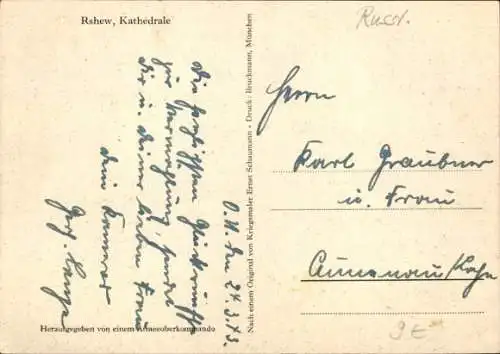 Rshew, Kathedrale
Russl.
O. U. den 24.3.43.
Die herzlichsten Glückwünsche
zur Vermählung, sendet
dir u. deiner lieben Frau
dein Kamerad
Herausgegeben von einem Armeeoberkommando
Nach einem Original von Kriegsmaler Ernst Schaumann • Druck: Bruckmann, München
Herrn
Karl Graubner
u. Frau
Aumenau/Lahn